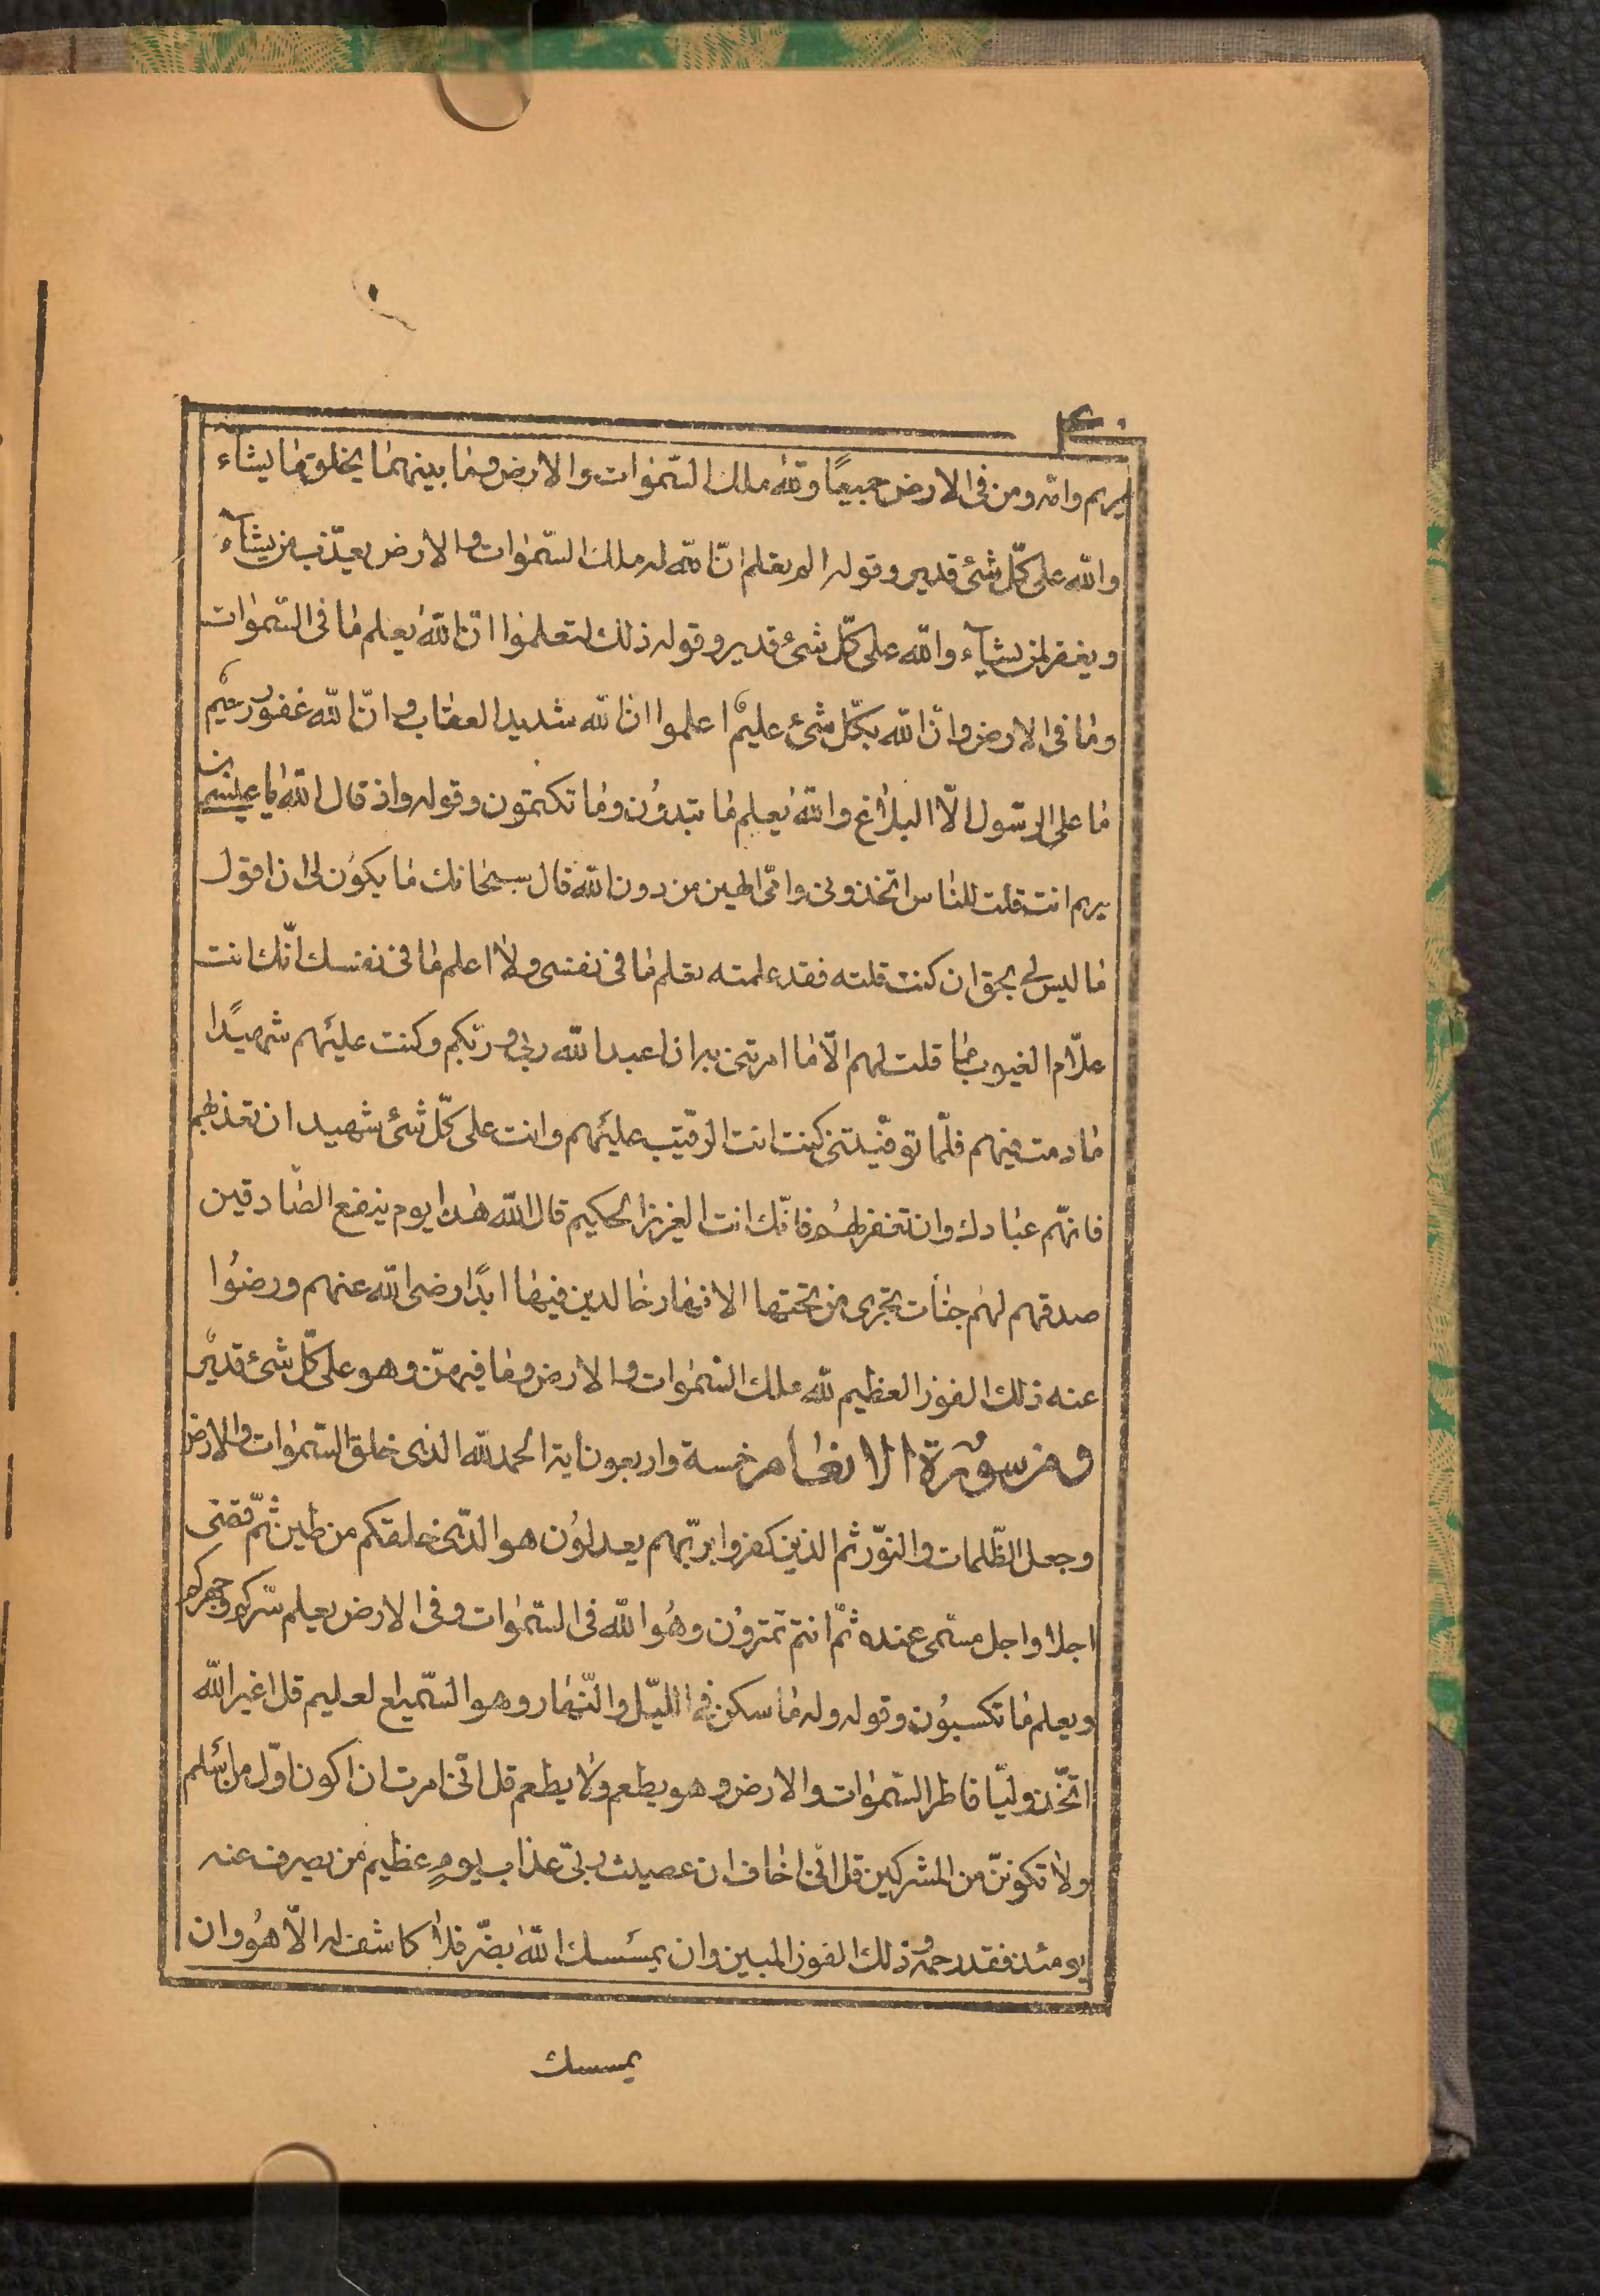 ٤٠
مريم وامّه ومن فى الارض جميعًا ولله ملك السّمٰوات والارض وما بينهمٰا يخلق مٰا يشاء
والله على كلّ شئ قدير وقوله الم يعلم انّ الله له ملك السّمٰوات والارض يعذّب من يشآء
ويغفر لمن يشآء والله على كلّ شئ قدير وقوله ذلك لتعلمٰوا انّ الله يعلم مٰا فى السّمٰوات
ومٰا فى الارض وانّ الله بكلّ شئ عليم اعلموا ان الله شديد العقاب وانّ الله غفور رحيم
مٰا على الرسّول الّا البلاٰغ والله يعلم مٰا تبدوُن ومٰا تكتمون وقوله واذ قال الله يٰا عيسى بن
مريم انت قلت للنٰاس اتخذونى وامّى الهين من دون الله قال سبحٰانك مٰا يكوُن لى ان اقول
مٰا ليس لى بحق ان كنت قلته فقد علمته تعلم مٰا فى نفسى ولاٰ اعلم مٰا فى نفسك انّك انت
علّام الغيوب مٰا قلت لهم الّا مٰا امرتنى به ان اعبدا لله ربى وربّكم وكنت عليهم شهيدًا
مٰا دمت فيهم فلمّا توفيّتنى كنت انت الرقيب عليهم وانت على كلّ شئ شهيد ان تعذبهم
فانهّم عبٰادك وان تغفر لهُم فانّك انت العزيز الحكيم قال الله هٰذا يوم ينفع الصّٰادقين
صدقهم لهم جنّٰات تجرى من تحتها الانهٰار خٰالدين فيهٰا ابدًا رضى الله عنهم ورضوُا
عنه ذلك الفوز العظيم لله ملك السّمٰوات والارض ومٰا فيهنّ وهو على كلّ شئ قدير
ومن سورة الانعٰام خمسة واربعون اية الحمد لله الذى خلق السّمٰوات والارض
وجعل الظّلمات والنوّر ثم الذين كفروا بربّهم يعدلوُن هو الذّى خلقكم من طين ثمّ قضى
اجلا واجل مسمّى عنده ثمّ انتم تمتروُن وهُوا لله فى السّمٰوات وفى الارض يعلم سّركم وجهركم
ويعلم مٰا تكسبوُن وقوله وله مٰا سكن فى الليّل والنّهٰار وهو السّميع لعليم قل اغير الله
اتّخذ وليّا فاطر السّمٰوات والارض وهو يطعم ولاٰ يطعم قل انّى امرت ان اكون اوّل من اسلم
ولاٰ تكوننّ من المشركين قل انّى اخٰاف ان عصيت ربّى عذاب يومٍ عظيم من يصرف عنه
يومئذ فقد رحمه وذلك الفوز المبين وان يمسسك الله بضّر فلاٰ كاشف له الّا هُو وان
يمسسك